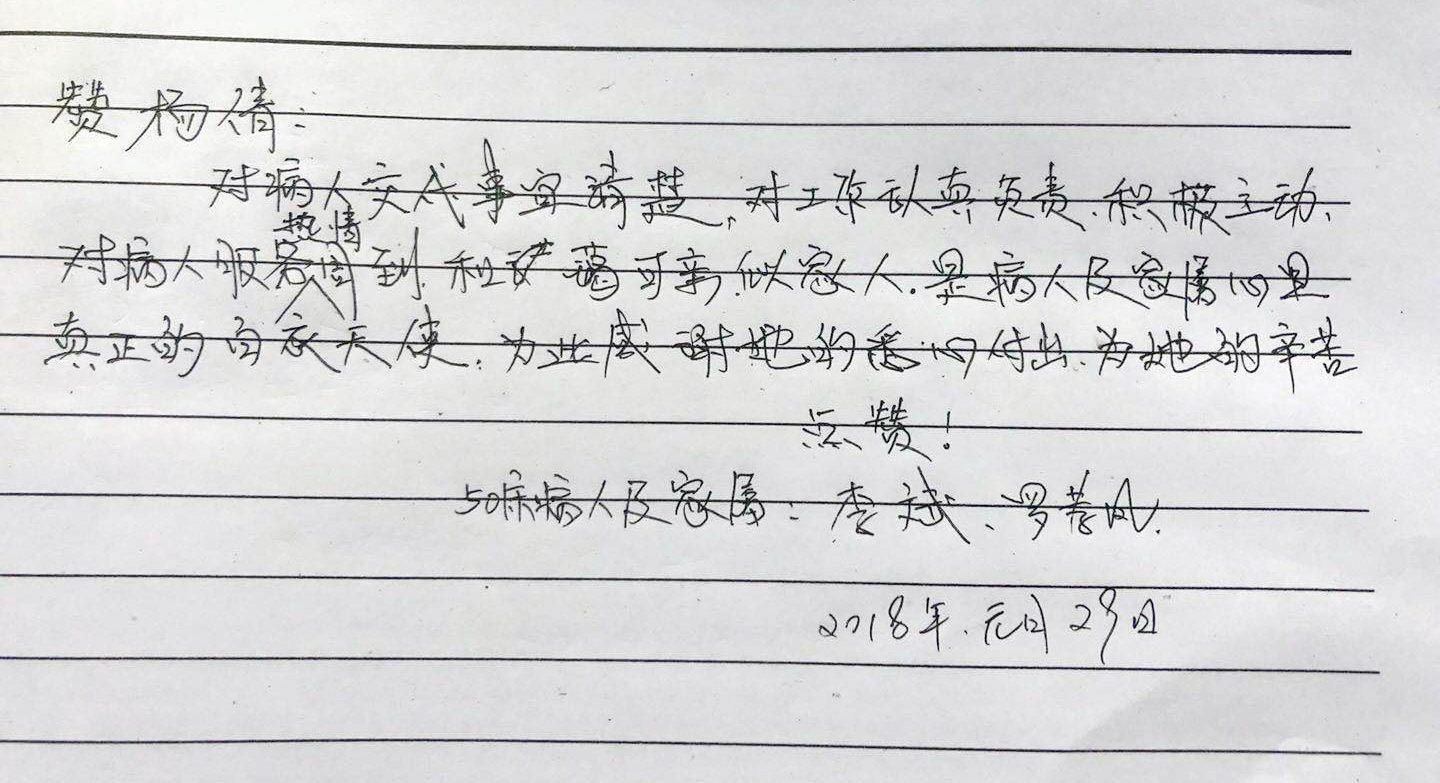 赞杨倩:
对病人交代事宜清楚,对工作认真负责、积极主动、
对病人服务热情周到,和蔼可亲,似家人.是病人及家属心里
真正的白衣天使.为此感谢她的悉心付出.为她的辛苦
点赞!
50床病人及家属:李斌、罗巷凤.
2018年.元月29日